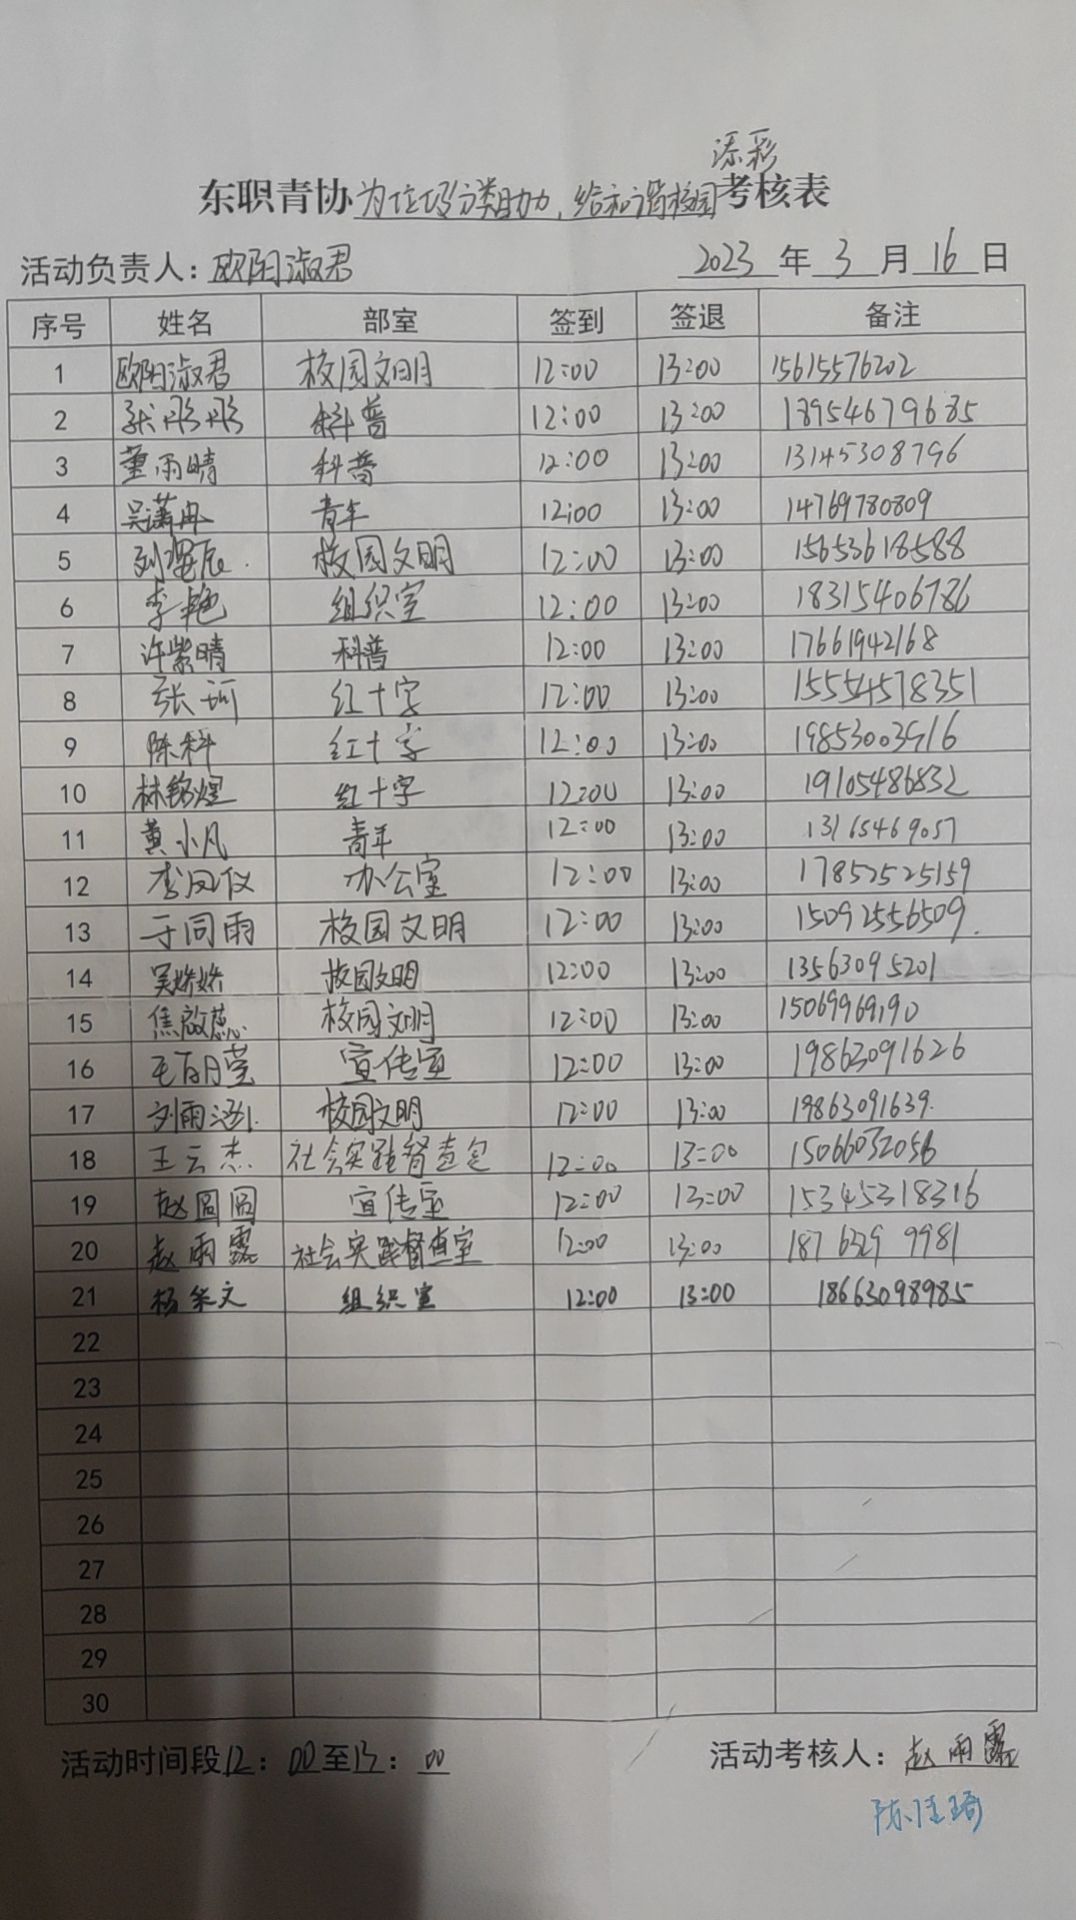 添彩
东职青协为垃圾分类助力，给和谐校园考核表
活动负责人：欧阳淑君 2023年3月16日
序号 姓名 部室 签到 签退 备注
1 欧阳淑君 校园文明 12:00 13:00 15615576202
2 张彤彤 科普 12:00 13:00 18954679685
3 董雨晴 科普 12:00 13:00 13145308796
4 吴潇冉 青年 12:00 13:00 14769780809
5 校园文明 12:00 13:00 15653618588
6 李艳 组织室 12:00 13:00 18315406786
7 许紫晴 科普 12:00 13:00 17661942168
8 张珂 红十字 12:00 13:00 15554578351
9 陈科 红十字 12:00 13:00 19853003916
10 林铭煜 红十字 12:00 13:00 19105486832
11 黄小凡 青年 12:00 13:00 13165469057
12 李凤仪 办公室 12:00 13:00 17852525159
13 于同雨 校园文明 12:00 13:00 15092556509
14 吴娇娇 校园文明 12:00 13:00 13563095201
15 焦啟蕊 校园文明 12:00 13:00 15069969190
16 宣传室 12:00 13:00 19863091626
17 刘雨涵 校园文明 12:00 13:00 19863091639
18 王云杰 社会实践督查室 12:00 13:00 15066032056
19 赵圆圆 宣传室 12:00 13:00 15345318316
20 赵雨露 社会实践督查室 12:00 13:00 187 6329 9981
21 组织室 12:00 13:00 18663098985
22
23
24
25
26
27
28
29
30
活动时间段12：00至13：00 活动考核人：赵雨露
陈佳琦